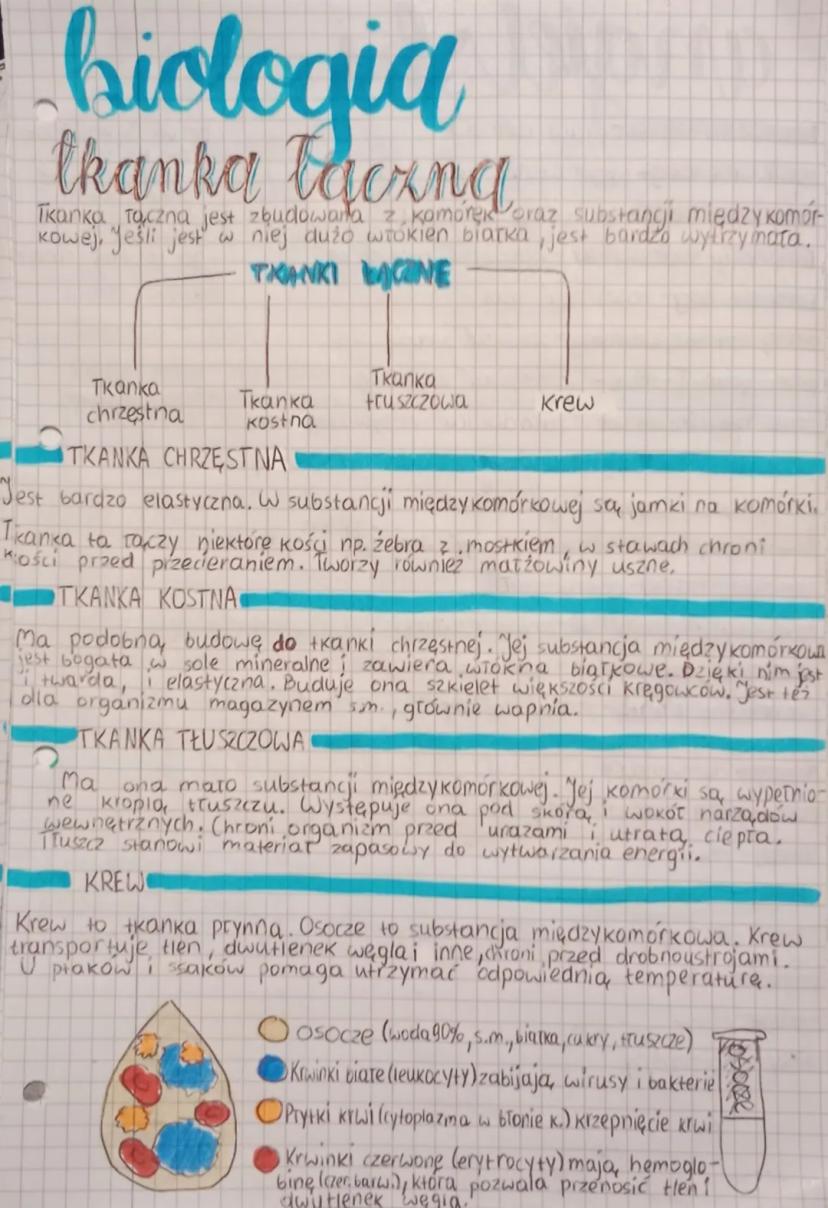 biologia
tkanka łączna
Tkanka łączna jest zbudowana z komórek oraz substancji międzykomór-
kowej. Jeśli jest w niej dużo włókien białka, jest bardzo wytrzymała.
TKANKI ŁĄCZNE
Tkanka
chrzęstna
Tkanka
kostna
Tkanka
tłuszczowa
Krew
TKANKA CHRZĘSTNA
Jest bardzo elastyczna. W substancji międzykomórkowej są jamki na komórki.
Tkanka ta łączy niektóre kości np. żebra z mostkiem, w stawach chroni
kości przed przecieraniem. Tworzy również małżowiny uszne.
TKANKA KOSTNA
Ma podobną budowę do tkanki chrzęstnej. Jej substancja międzykomórkowa
jest bogata w sole mineralne i zawiera włókna białkowe. Dzięki nim jest
i twarda, i elastyczna. Buduje ona szkielet większości kręgowców. Jest też
dla organizmu magazynem s.m., głównie wapnia.
TKANKA TŁUSZCZOWA
Ma ona mało substancji międzykomórkowej. Jej komórki są wypełnio-
ne kroplą tłuszczu. Występuje ona pod skórą i wokół narządów
wewnętrznych. Chroni organizm przed urazami i utratą ciepła.
Tłuszcz stanowi materiał zapasowy do wytwarzania energii.
KREW
Krew to tkanka płynna. Osocze to substancja międzykomórkowa. Krew
transportuje tlen, dwutlenek węgla i inne, chroni przed drobnoustrojami.
U ptaków i ssaków pomaga utrzymać odpowiednią temperaturę.
osocze (woda 90%, s.m., białka, cukry, tłuszcze)
Krwinki białe (leukocyty) zabijają wirusy i bakterie
Płytki krwi (cytoplazma w błonie k.) krzepnięcie krwi
Krwinki czerwone (erytrocyty) mają hemoglo-
binę (czer. barw.), która pozwala przenosić tlen i
dwutlenek węgla.
osocze